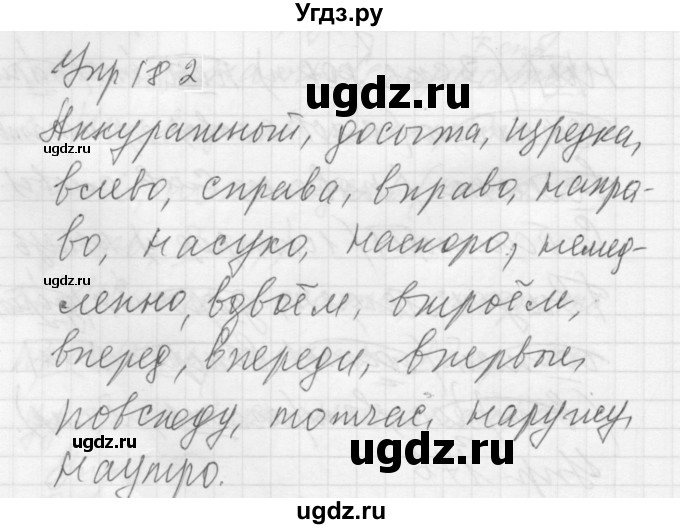 Угдз.ру
Упр 182
ugdz.ru
Аккуратный, досыта, изредка,
ugdz.ru
влево, справа, вправо, напра-
во, насухо, наскоро, немед-
ugdz.ru
ленно, вдвоём, втроём,
ugdz.ru
вперед, впереди, впервые,
повсюду, тотчас, наружу,
ugdz.ru
ugdz.ru
наутро.
ugdz.ru